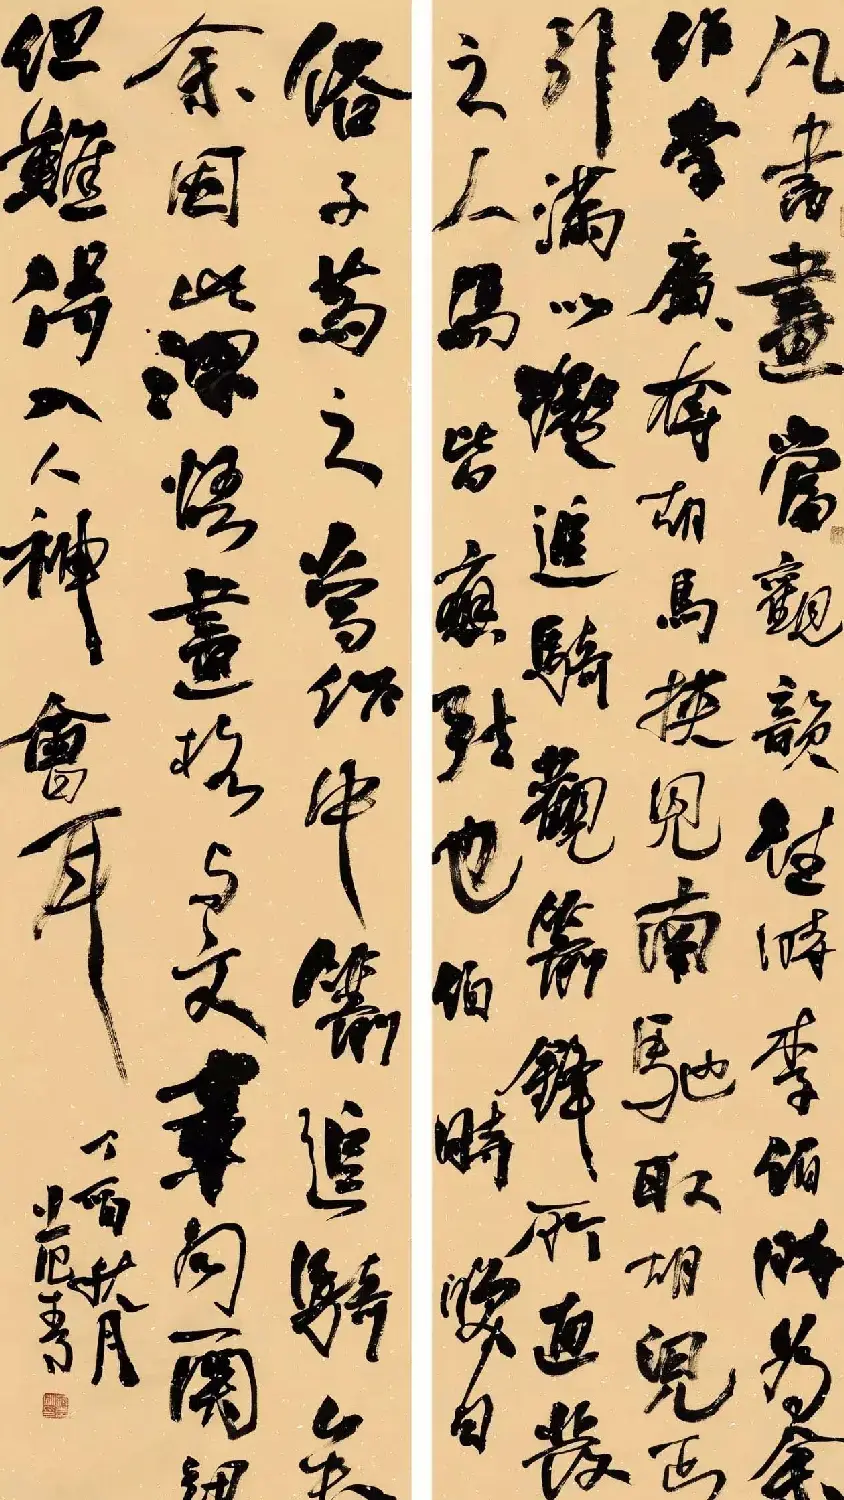 凡書畫當觀韻往時李伯時為余
作李廣奪胡馬挾兒南馳取胡兒弓
引滿以擬追騎觀箭鋒所直發
之人馬皆應弦也伯時笑曰
俗子為之當作中箭追騎矣
余因此深悟畫格与文章同一關紐
但難得入人神會耳
丁酉秋月
范青